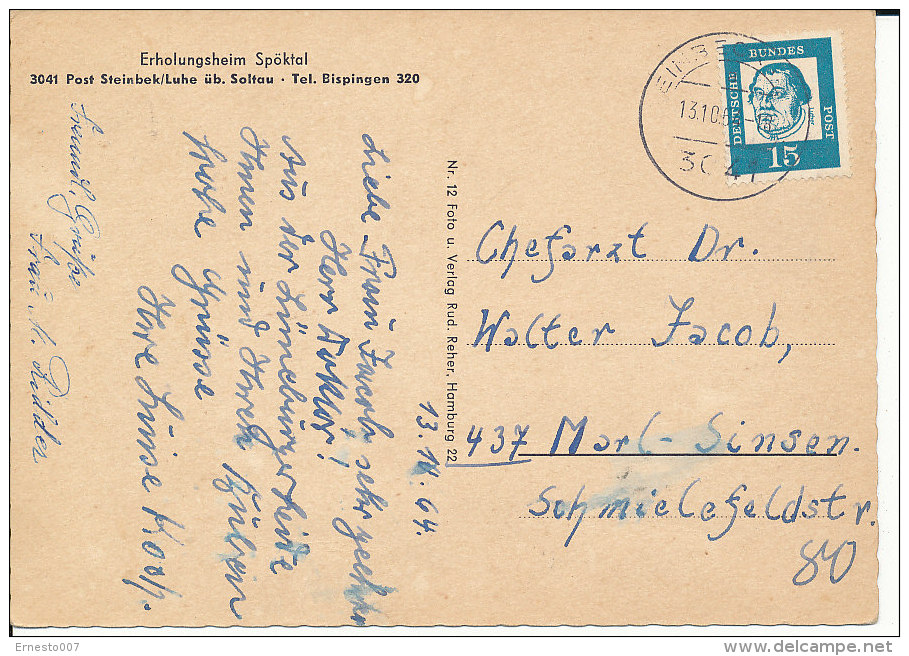 Erholungsheim Spöktal
3041 Post Steinbek/Luhe üb. Soltau · Tel. Bispingen 320
13.10.64.
Liebe Frau Jacob, sehr geehrter
Herr Doktor!
Aus der Lüneburger Heide
Ihnen und Ihren
frohe Grüsse
Ihre Luise
Grüße
Frau M. Ridder
Nr. 12 Foto u. Verlag Rud. Reher, Hamburg 22
13.10.6
3041
DEUTSCHE BUNDES POST
15
Chefarzt Dr.
Walter Jacob,
437 Marl-Sinsen.
Schmielefeldstr.
80
Ernesto007
www.delcampe.net